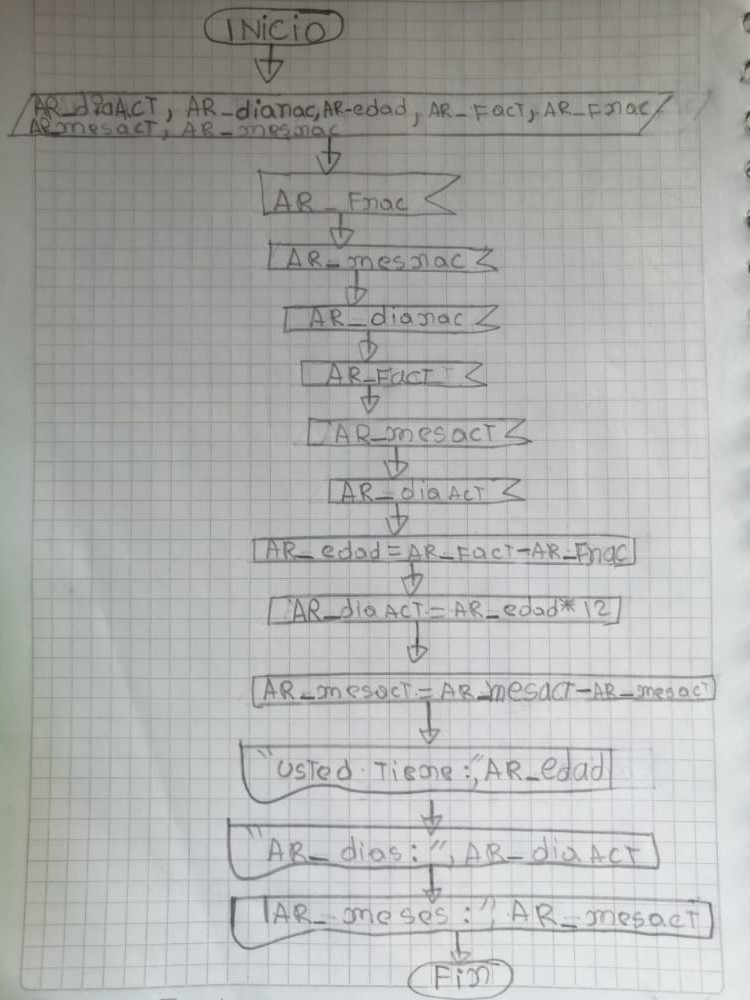 INICIO
AR_diaACT, AR_dianac, AR-edad, AR_FACT, AR_Fnac
ARmesact, AR_mesnac
AR_Fnac
AR_mesnac
AR_dianac
AR_FACT
AR_mesacT
AR_diaAcT
AR_edad=AR_FacT-AR_Fnac
AR_diaACT=AR_edad*12
AR_mesact=AR_mesact-AR_mesacT
"USTed Tiene:", AR_edad
"AR_dias:", AR_diaACT
"AR_meses:", AR_mesacT
Fin